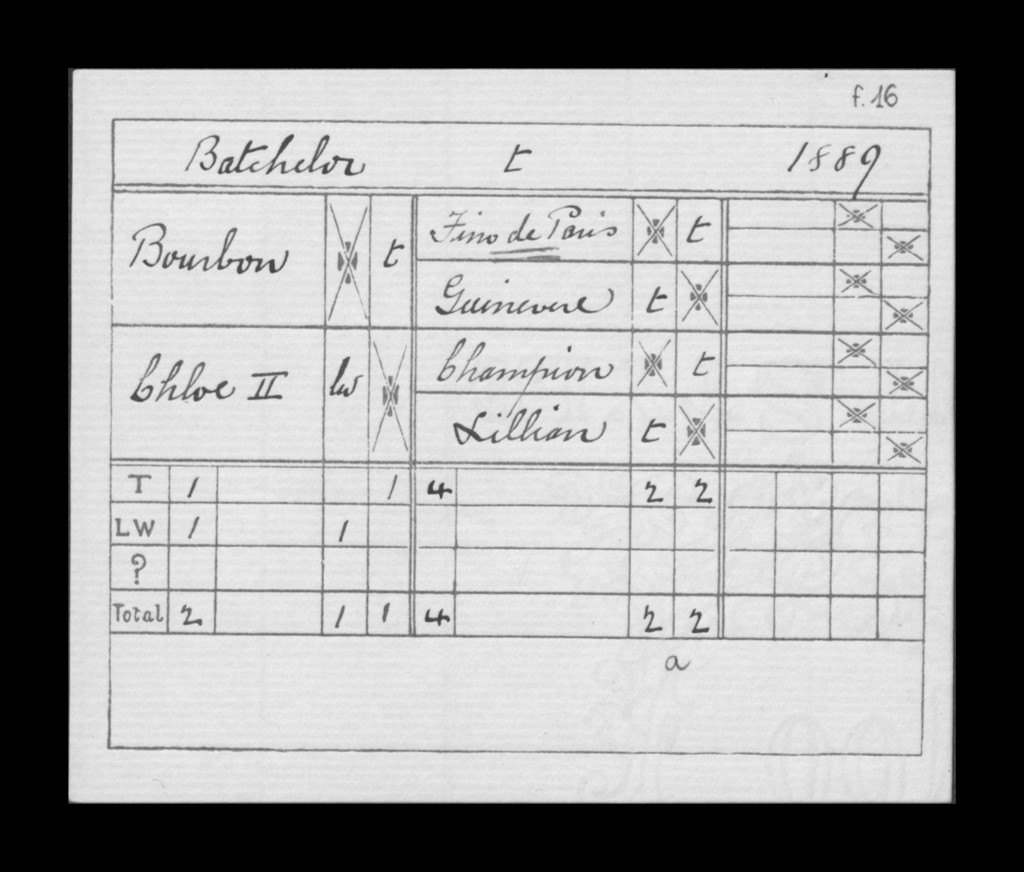 f. 16
Batchelor t 1889
Bourbon t
Fino de Paris t
Guinevere t
Chloe II lw
Champion t
Lillian t
T 1 1 4 2 2
LW 1 1
?
Total 2 1 1 4 2 2
a